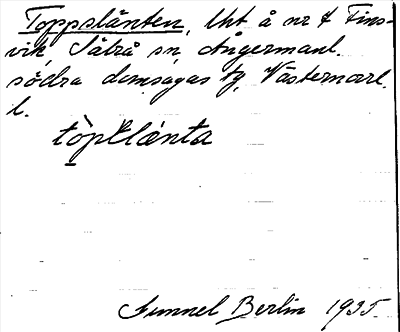 Toppslånten, lht å nr 7 Fins-
vik, Sätrå sn, Ångermanl.
södra domsagas tg, Västernorrl.
l.
tòpslånta
Gunnel Berlin 1935